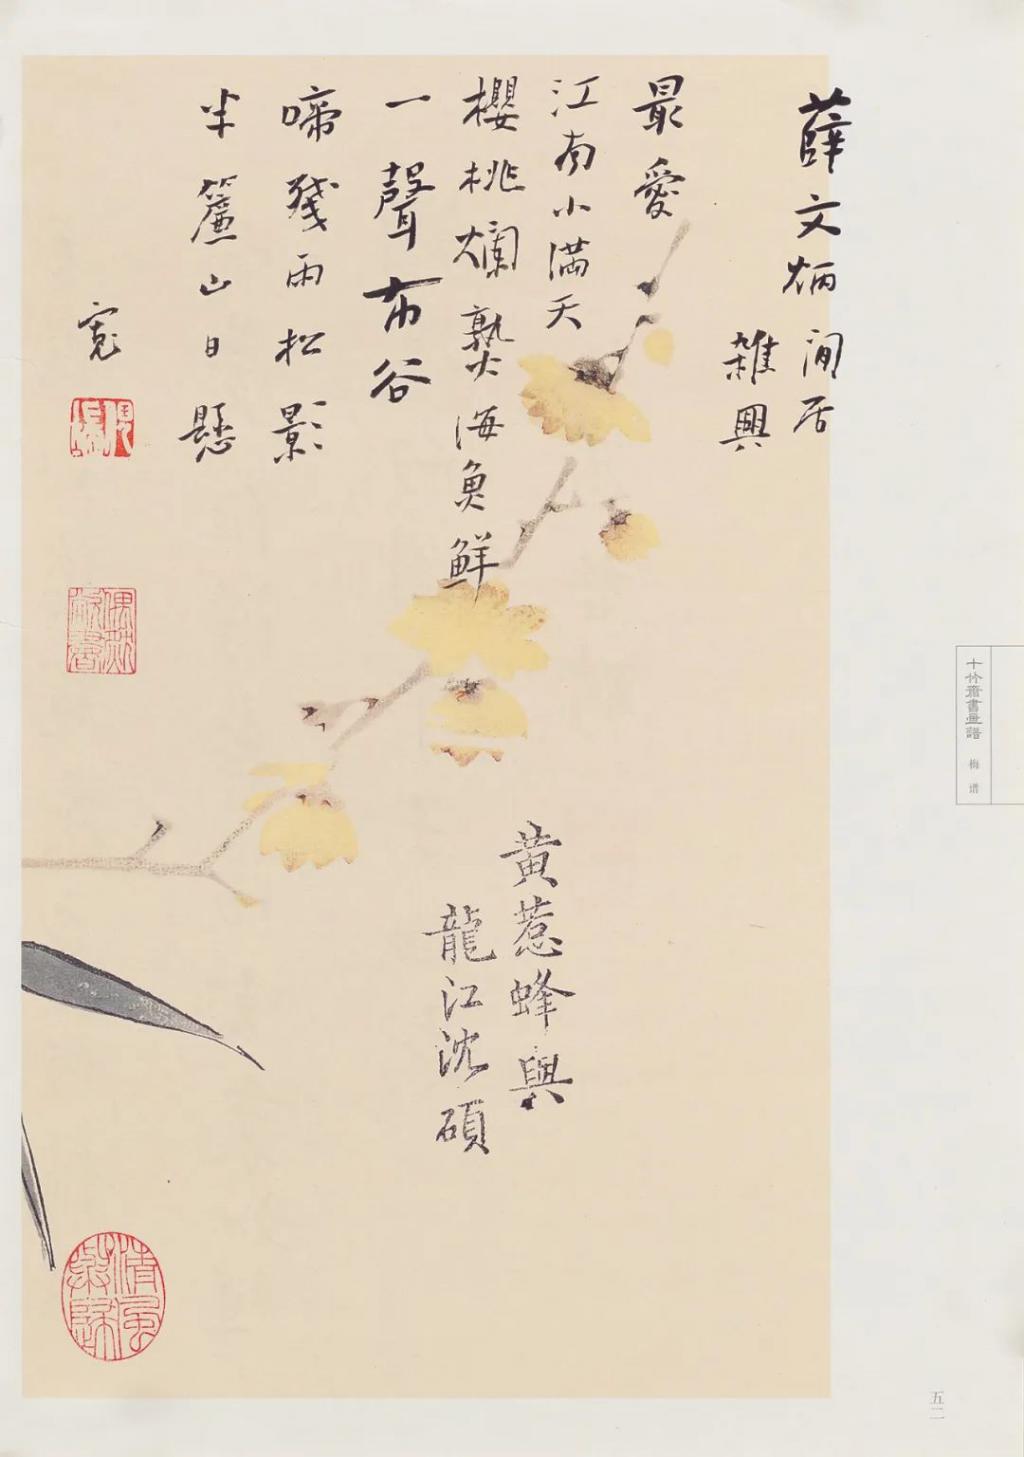 薛文炳閒居
雑興
最愛
江南小滿天
櫻桃爛熟海魚鮮
一聲布谷
啼殘雨松影
半簾山日懸
寬
黃惹蜂與
龍江沈碩
清風
十竹齋書畫譜 梅谱
五二